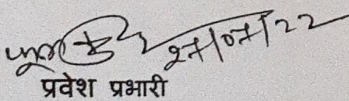 27/07/22
प्रवेश प्रभारी